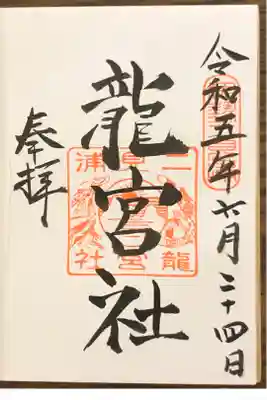 令和五年六月二十四日
龍宮社
奉拝
二見浦
龍宮社